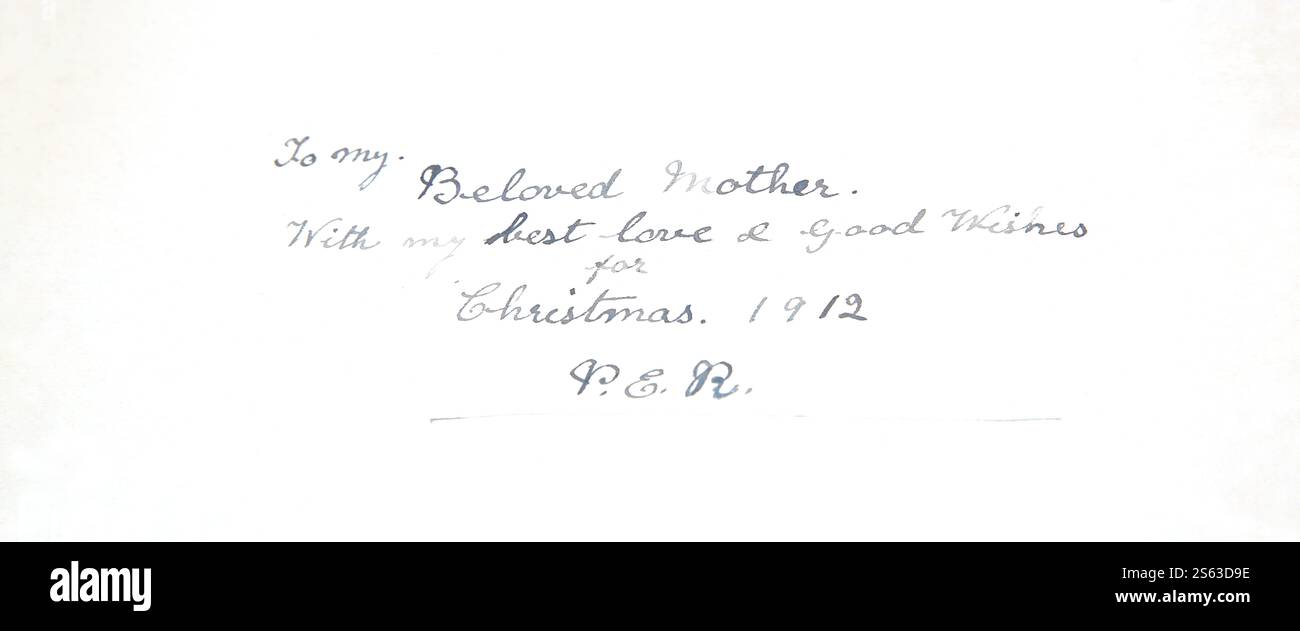 To my.
Beloved Mother.
With my best love & Good Wishes
for
Christmas. 1912
P. E. R.
alamy
Image ID: 2S63D9E
www.alamy.com